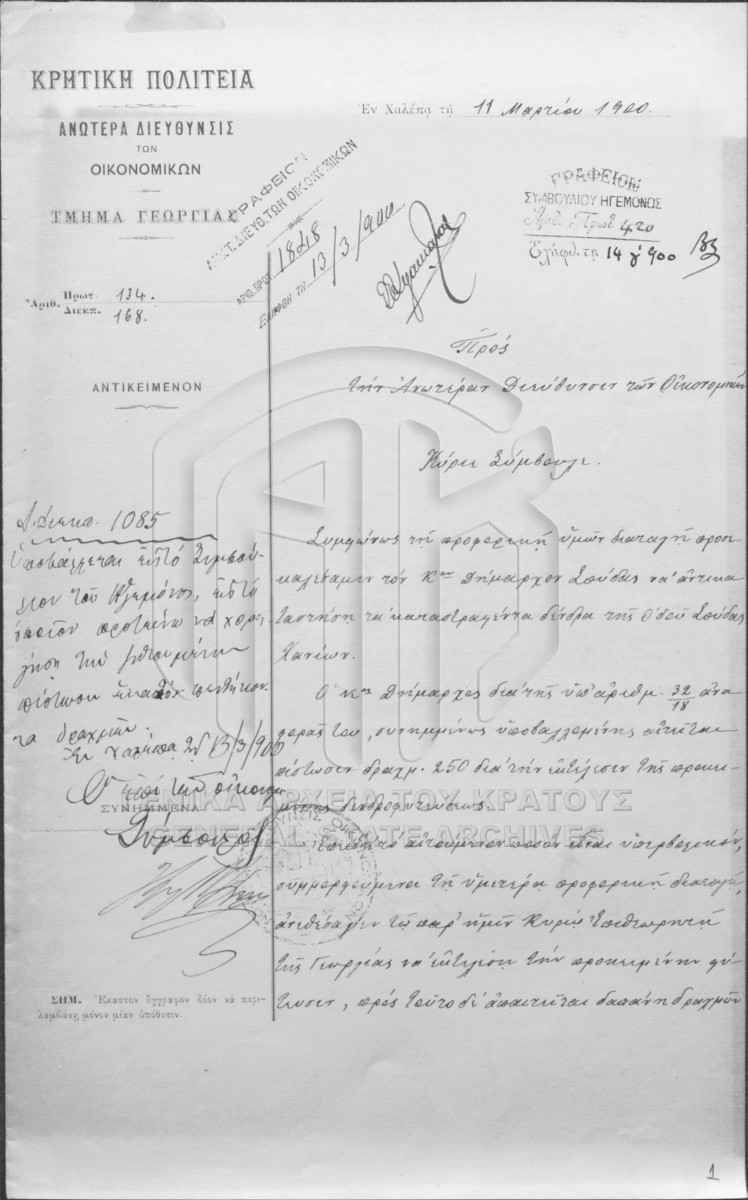 ΚΡΗΤΙΚΗ ΠΟΛΙΤΕΙΑ
ΑΝΩΤΕΡΑ ΔΙΕΥΘΥΝΣΙΣ
ΤΩΝ
ΟΙΚΟΝΟΜΙΚΩΝ
ΤΜΗΜΑ ΓΕΩΡΓΙΑΣ
Ἀριθ. Πρωτ. 134.
Διεκπ. 168.
ΑΝΤΙΚΕΙΜΕΝΟΝ
Ἐν Χαλέπᾳ τῇ 11 Μαρτίου 1900.
ΓΡΑΦΕΙΟΝ
ΑΝΩΤ. ΔΙΕΥΘ. ΤΩΝ ΟΙΚΟΝΟΜΙΚΩΝ
ΑΡΙΘ. ΠΡΩΤ. 1848
ΕΛΗΦΘΗ ΤΗ 13/3/900
ΓΡΑΦΕΙΟΝ
ΣΥΜΒΟΥΛΙΟΥ ΗΓΕΜΟΝΟΣ
Ἀριθ. Πρωτ. 420
Ἐλήφθ. τῃ 14 γ 900
Πρός
τήν Ἀνωτέραν Διεύθυνσιν τῶν Οἰκονομικῶν
Κύριε Σύμβουλε.
Συμφώνως τῇ προφορικῇ ὑμῶν διαταγῇ προσε
καλέσαμεν τόν Κον Δήμαρχον Σούδας νά ἀντικα
ταστήσῃ τά καταστραφέντα δένδρα τῆς ὁδοῦ Σούδας
Χανίων.
Ὁ κος Δήμαρχος διά τῆς ὑπ' ἀριθμ. 32/18 ἀνα
φορᾶς του, συνημμένως ὑποβαλλομένης αἰτεῖται
πίστωσιν δραχμ. 250 διά τήν ἐκτέλεσιν τῆς προκει
μένης δενδροφυτεύσεως.
Ἐπειδή τό αἰτούμενον ποσόν εἶναι ὑπερβολικόν,
συμμορφούμενοι τῇ ὑμετέρᾳ προφορικῇ διαταγῇ,
ἀνεθέσαμεν τῷ παρ' ἡμῖν Κυρίῳ Ἐπιθεωρητῇ
τῆς Γεωργίας νά ἐκτελέσῃ τήν προκειμένην φύ
τευσιν, πρός τοῦτο δέ ἀπαιτεῖται δαπάνη δραχμῶν
Διεκπ. 1085
Ὑποβάλλεται εἰς τό Συμβού
λιον τοῦ Ἡγεμόνος, εἰς τό
ὁποῖον προτείνω νά χορη
γήσῃ τήν αἰτουμένην
πίστωσιν ἑκατόν πεντήκον
τα δραχμῶν.
Ἐν Χαλέπᾳ τῇ 13/3/900
Ὁ ἐπί τῶν οἰκονομ
ΣΥΝΗΜΜΕΝΑ
Σύμβουλος
ΓΕΝΙΚΑ ΑΡΧΕΙΑ ΤΟΥ ΚΡΑΤΟΥΣ
GENERAL STATE ARCHIVES
ΣΗΜ. Ἕκαστον ἔγγραφον δέον νὰ περι-
λαμβάνῃ μόνον μίαν ὑπόθεσιν.
1